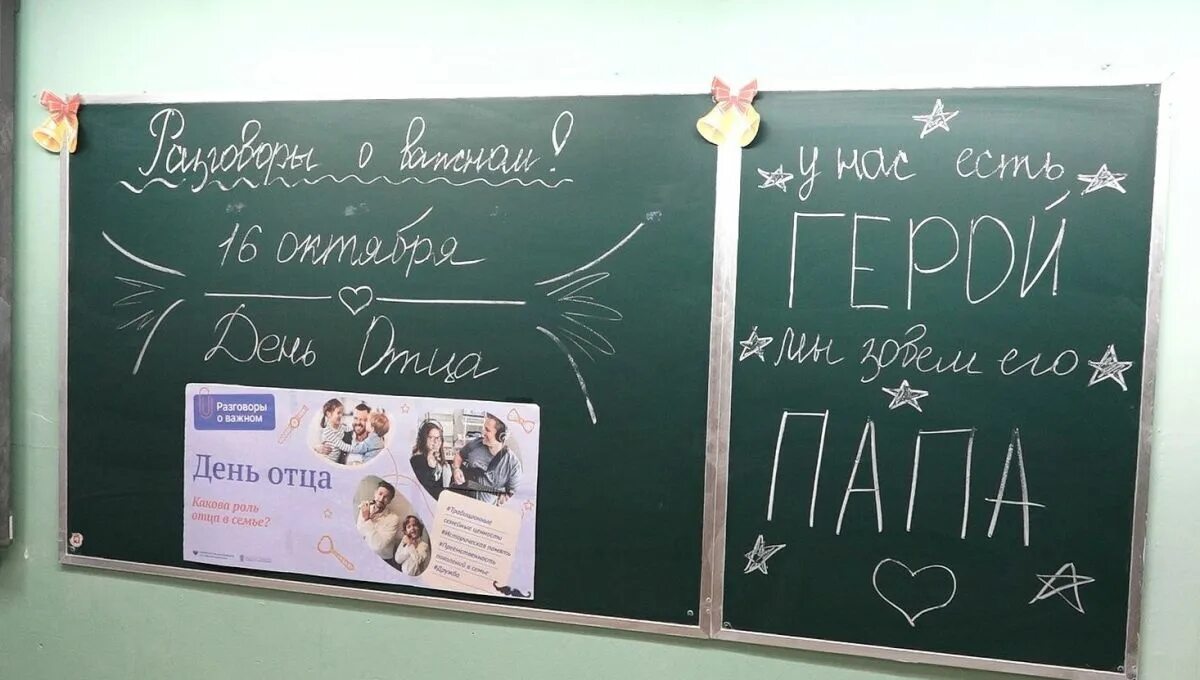 Разговоры о важном!
16 октября
День Отца
Разговоры
о важном
День отца
Какова роль
отца в семье?
#Традиционные
семейные ценности
#Историческая память
#Преемственность
поколений в семье
#Дружба
у нас есть
ГЕРОЙ
мы зовем его
ПАПА